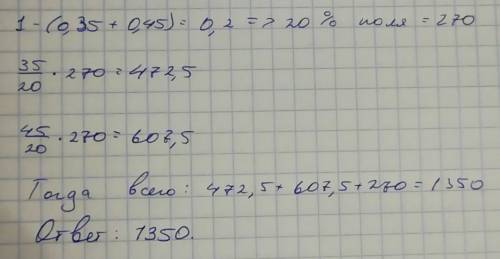 1-(0,35 + 0,45) = 0,2 => 20 % поля = 270
35/20 · 270 = 472,5
45/20 · 270 = 607,5
Тогда всего: 472,5 + 607,5 + 270 = 1350
Ответ: 1350.